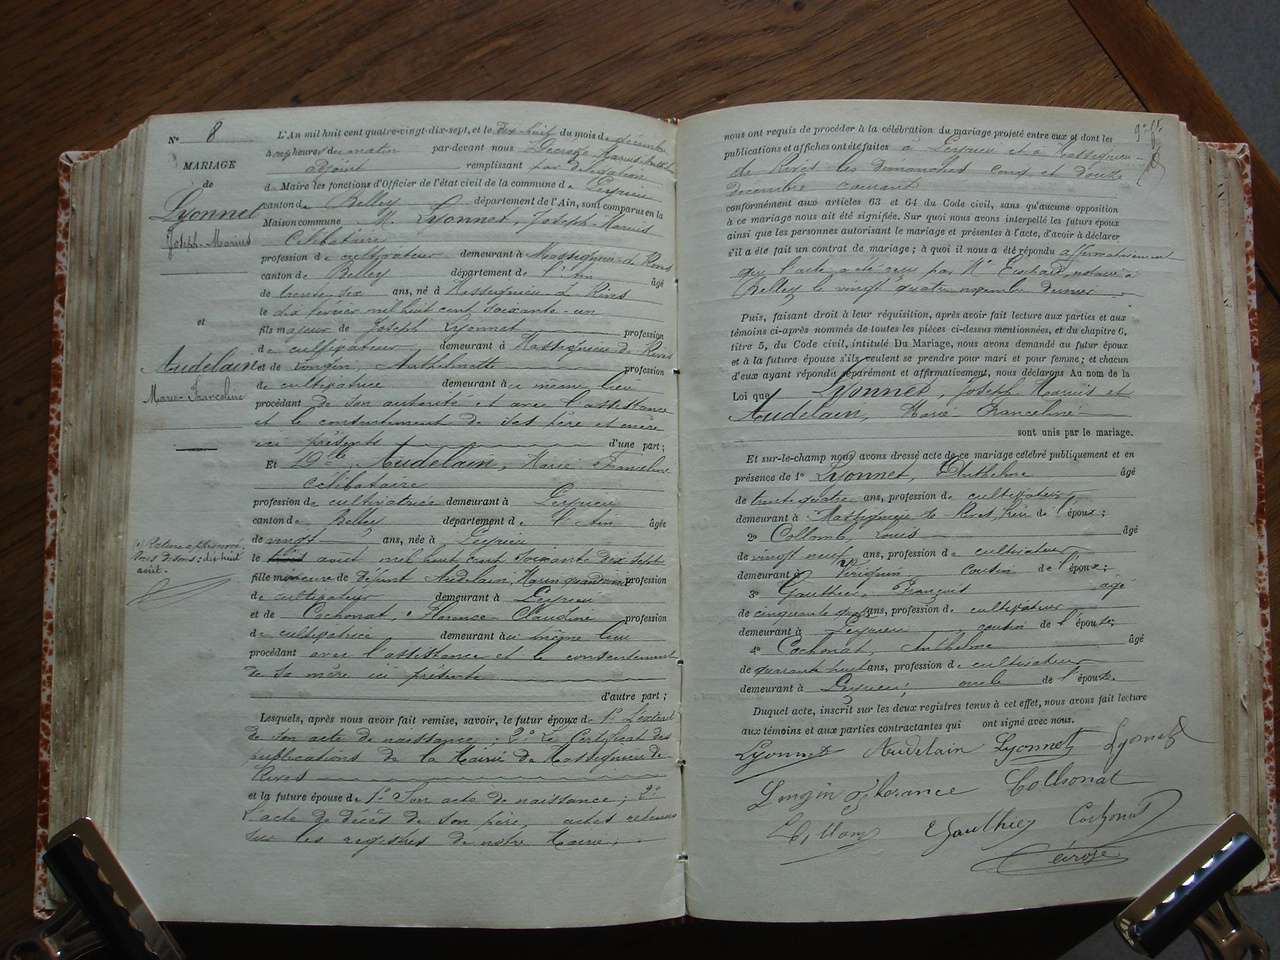 N° 8
MARIAGE
de
Lyonnet
Joseph-Marius
et
Audelain
Marie-Franceline
L'An mil huit cent quatre-vingt-dix-sept, et le dix huit du mois de décembre
à heures du matin par-devant nous Décroze Marius
Adjoint remplissant par délégation
de Maire les fonctions d'Officier de l'état civil de la commune de Peyrieu
canton de Belley département de l'Ain, sont comparus en la
Maison commune M. Lyonnet, Joseph-Marius
Célibataire
profession de cultivateur demeurant à Massignieu de Rives
canton de Belley département de l'Ain âgé
de trente six ans, né à Massignieu de Rives
le dix février mil huit cent soixante-un
fils majeur de Joseph Lyonnet profession
de cultivateur demeurant à Massignieu de Rives
et de Longin, Anthelmette profession
de cultivatrice demeurant à ce même lieu
procédant de son autorité et avec l'assistance
et le consentement de ses père et mère
ici présents d'une part;
Et Dlle Audelain, Marie Franceline
Célibataire
profession de cultivatrice demeurant à Peyrieu
canton de Belley département de l'Ain âgée
de vingt ans, née à Peyrieu
le août mil huit cent soixante dix sept
fille mineure de défunt Audelain, Marin profession
de cultivateur demeurant à Peyrieu
et de Cochonat, Florence Claudine profession
de cultivatrice demeurant à ce même lieu
procédant avec l'assistance et le consentement
de sa mère ici présente
d'autre part;
Lesquels, après nous avoir fait remise, savoir, le futur époux de 1° L'extrait
de son acte de naissance; 2° Le Certificat des
publications de la Mairie de Massignieu de
Rives
et la future épouse de 1° Son acte de naissance; 2°
L'acte de décès de son père, actes retenus
sur les registres de notre Mairie,
nous ont requis de procéder à la célébration du mariage projeté entre eux et dont les
publications et affiches ont été faites à Peyrieu et à Massignieu
de Rives les dimanches cinq et douze
décembre courant
conformément aux articles 63 et 64 du Code civil, sans qu'aucune opposition
à ce mariage nous ait été signifiée. Sur quoi nous avons interpellé les futurs époux
ainsi que les personnes autorisant le mariage et présentes à l'acte, d'avoir à déclarer
s'il a été fait un contrat de mariage; à quoi il nous a été répondu affirmativement
que l'acte a été reçu par Me notaire à
Belley le vingt quatre novembre dernier
Puis, faisant droit à leur réquisition, après avoir fait lecture aux parties et aux
témoins ci-après nommés de toutes les pièces ci-dessus mentionnées, et du chapitre 6,
titre 5, du Code civil, intitulé Du Mariage, nous avons demandé au futur époux
et à la future épouse s'ils veulent se prendre pour mari et pour femme; et chacun
d'eux ayant répondu séparément et affirmativement, nous déclarons Au nom de la
Loi que Lyonnet, Joseph Marius et
Audelain, Marie Franceline
sont unis par le mariage.
Et sur-le-champ nous avons dressé acte de ce mariage célébré publiquement et en
présence de 1° Lyonnet, Anthelme âgé
de trente quatre ans, profession de cultivateur
demeurant à Massignieu de Rives, frère de l'époux;
2° Collomb, Louis âgé
de vingt neuf ans, profession de cultivateur
demeurant à Virignin, cousin de l'époux;
3° Gauthier, François âgé
de cinquante ans, profession de cultivateur
demeurant à Peyrieu, cousin de l'épouse;
4° Cochonat, Anthelme âgé
de quarante huit ans, profession de cultivateur
demeurant à Peyrieu, oncle de l'épouse
Duquel acte, inscrit sur les deux registres tenus à cet effet, nous avons fait lecture
aux témoins et aux parties contractantes qui ont signé avec nous.
Lyonnet Audelain Lyonnet Lyonnet
Longin Florance Cochonat
Collomb Gauthier Cochonat
Décroze